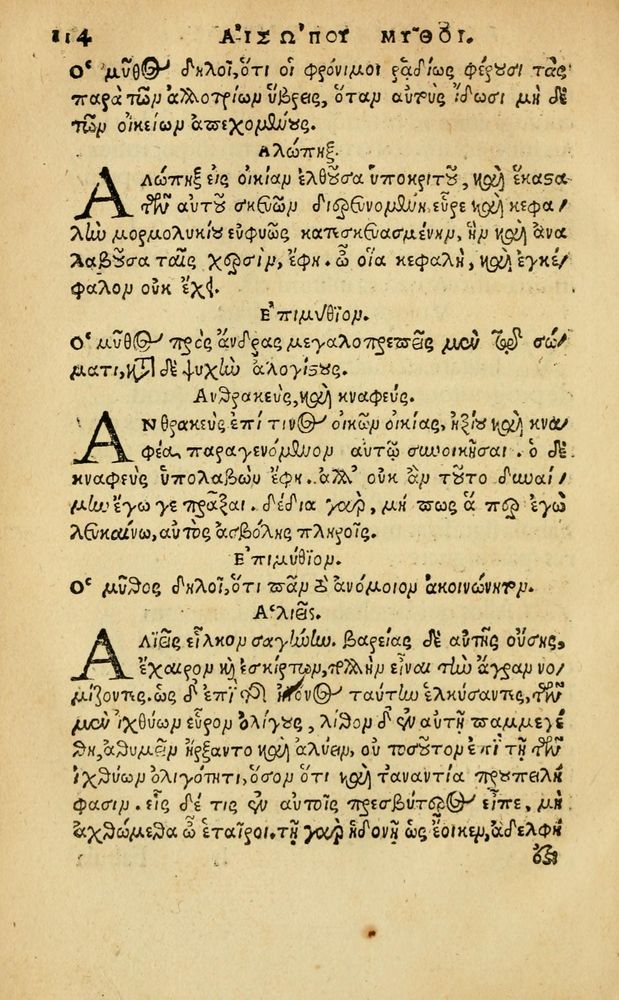 114 ΑἸΣΩ'ΠΟΥ ΜΥ͂ΘΟΙ.
Ὁ μῦθος δηλοῖ, ὅτι οἱ φρόνιμοι ῥᾳδίως φέρουσι τὰς
παρὰ τῶν ἀλλοτρίων ὕβρεις, ὅταν αὐτοὺς ἴδωσι μὴ δὲ
τῶν οἰκείων ἀπεχομένους.
Αλώπηξ.
Αλώπηξ εἰς οἰκίαν ἐλθοῦσα ὑποκριτοῦ, καὶ ἕκαστα
τῶν αὐτοῦ σκευῶν διερευνομένη, εὗρε καὶ κεφα/
λὴν μορμολυκίου εὐφυῶς κατεσκευασμένην, ἣν καὶ ἀνα
λαβοῦσα ταῖς χερσὶν, ἔφη. ὦ οἵα κεφαλὴ, καὶ ἐγκέ/
φαλον οὐκ ἔχει.
Ἐπιμύθιον.
Ὁ μῦθος πρὸς ἄνδρας μεγαλοπρεπεῖς μὲν τῷ σώ/
ματι, κατὰ δὲ ψυχὴν ἀλογίστους.
Ανθρακεὺς, καὶ κναφεύς.
Ανθρακεὺς ἐπί τινος οἰκῶν οἰκίας, ἠξίου καὶ κνα/
φέα, παραγενόμενον αὐτῷ συνοικῆσαι. ὁ δὲ
κναφεὺς ὑπολαβὼν ἔφη. ἀλλ' οὐκ ἂν τοῦτο δυναί/
μην ἔγωγε πρᾶξαι. δέδια γὰρ, μή πως ἅ περ ἐγὼ
λευκαίνω, αὐτὸς ἀσβόλης πληροῖς.
Ἐπιμύθιον.
Ὁ μῦθος δηλοῖ, ὅτι πᾶν τὸ ἀνόμοιον ἀκοινώνητον.
Ἁλιεῖς.
Αλιεῖς εἷλκον σαγήνην. βαρείας δὲ αὐτῆς οὔσης,
ἔχαιρον καὶ ἐσκίρτων, πολλὴν εἶναι τὴν ἄγραν νο/
μίζοντες. ὡς δ' ἐπὶ τῆς ἠϊόνος ταύτην ἑλκύσαντες, τῶν
μὲν ἰχθύων εὗρον ὀλίγους, λίθον δ' ἐν αὐτῇ παμμεγέ
θη, ἀθυμεῖν ἤρξαντο καὶ ἀλύειν, οὐ τοσοῦτον ἐπὶ τῇ τῶν
ἰχθύων ὀλιγότητι, ὅσον ὅτι καὶ τἀναντία προὐπειλή
φασιν. εἷς δέ τις ἐν αὐτοῖς πρεσβύτερος εἶπε, μὴ
ἀχθώμεθα ὦ ἑταῖροι. τῇ γὰρ ἡδονῇ ὡς ἔοικεν, ἀδελφή